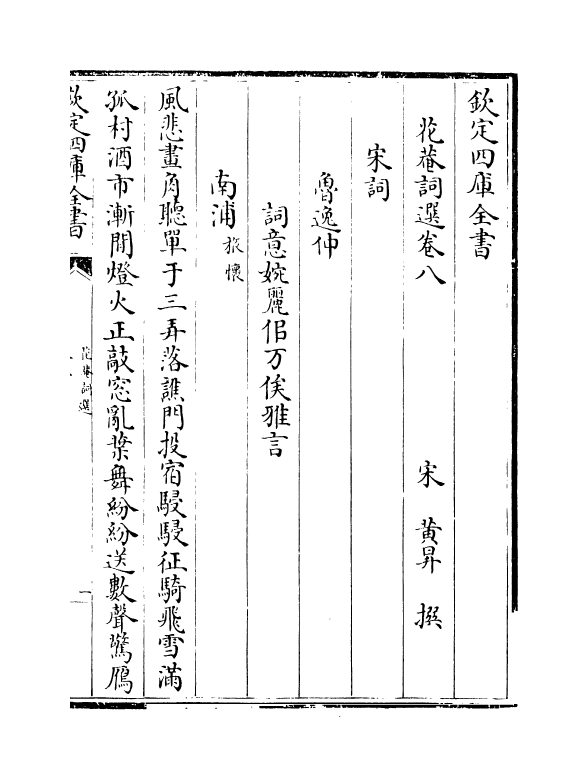 欽定四庫全書
花菴詞選卷八
宋 黃昇 撰
宋詞
魯逸仲
詞意婉麗佀万俟雅言
南浦 旅懷
風悲畫角聽單于三弄落譙門投宿駸駸征騎飛雪滿
孤村酒市漸閒燈火正敲窓亂葉舞紛紛送數聲驚鴈
欽定四庫全書
花菴詞選
一